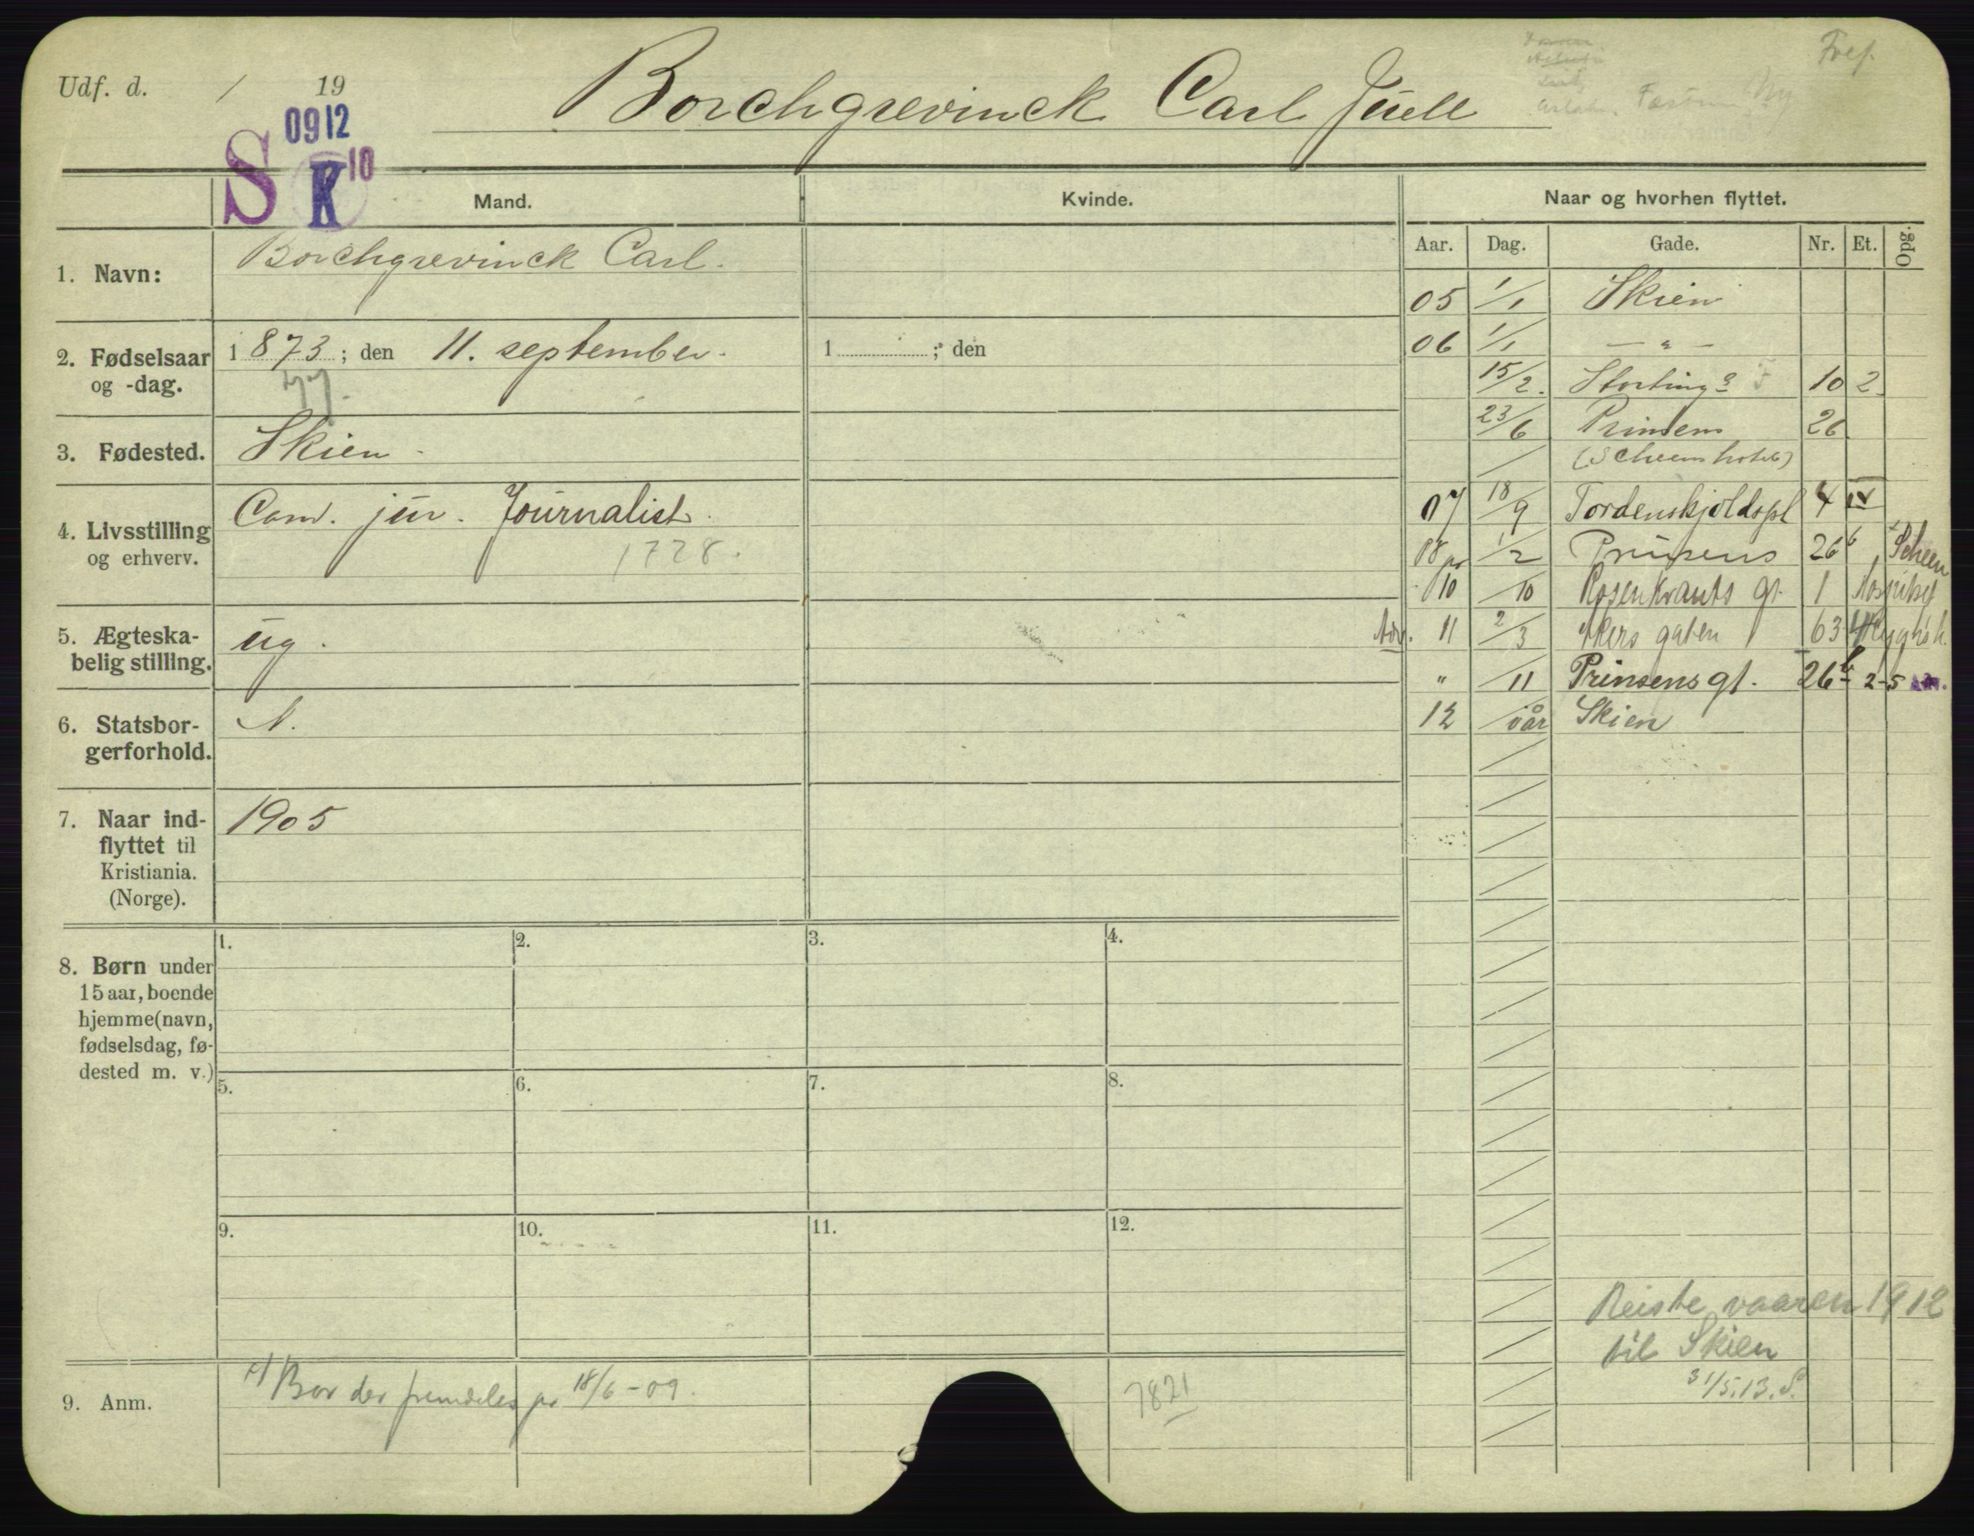 Udf. d. / 19
Borchgrevinck Carl Juell
Fref.
Ny
0912
S K 10
Mand.
Kvinde.
Naar og hvorhen flyttet.
Aar. Dag. Gade. Nr. Et. Opg.
1. Navn:
Borchgrevinck Carl.
2. Fødselsaar
og -dag.
1873; den 11. september.
1 ; den
3. Fødested.
Skien
4. Livsstilling
og erhverv.
Cand. jur. Journalist.
1728.
5. Ægteska-
belig stilling.
ug.
6. Statsbor-
gerforhold.
N.
7. Naar ind-
flyttet til
Kristiania.
(Norge).
1905
05 1/1 Skien
06 1/1 — " —
15/2. Storting g 10 2
23/6 Prinsens 26
(Scheens hotel)
07 18/9 Tordenskjoldspl 4 IV
08 1/2 Prinsens 26 Scheen
10 /10 Rosenkrants gt. 1
Adr. 11 2/3 Akers gaten 63
" /11 Prinsens gt. 26 2-5
12 /vår Skien
8. Børn under
15 aar, boende
hjemme (navn,
fødselsdag, fø-
dested m. v.)
1. 2. 3. 4.
5. 6. 7. 8.
9. 10. 11. 12.
Reiste vaaren 1912
til Skien
31/5.13. S.
9. Anm.
Bor der fremdeles pr 18/6-09.
7821